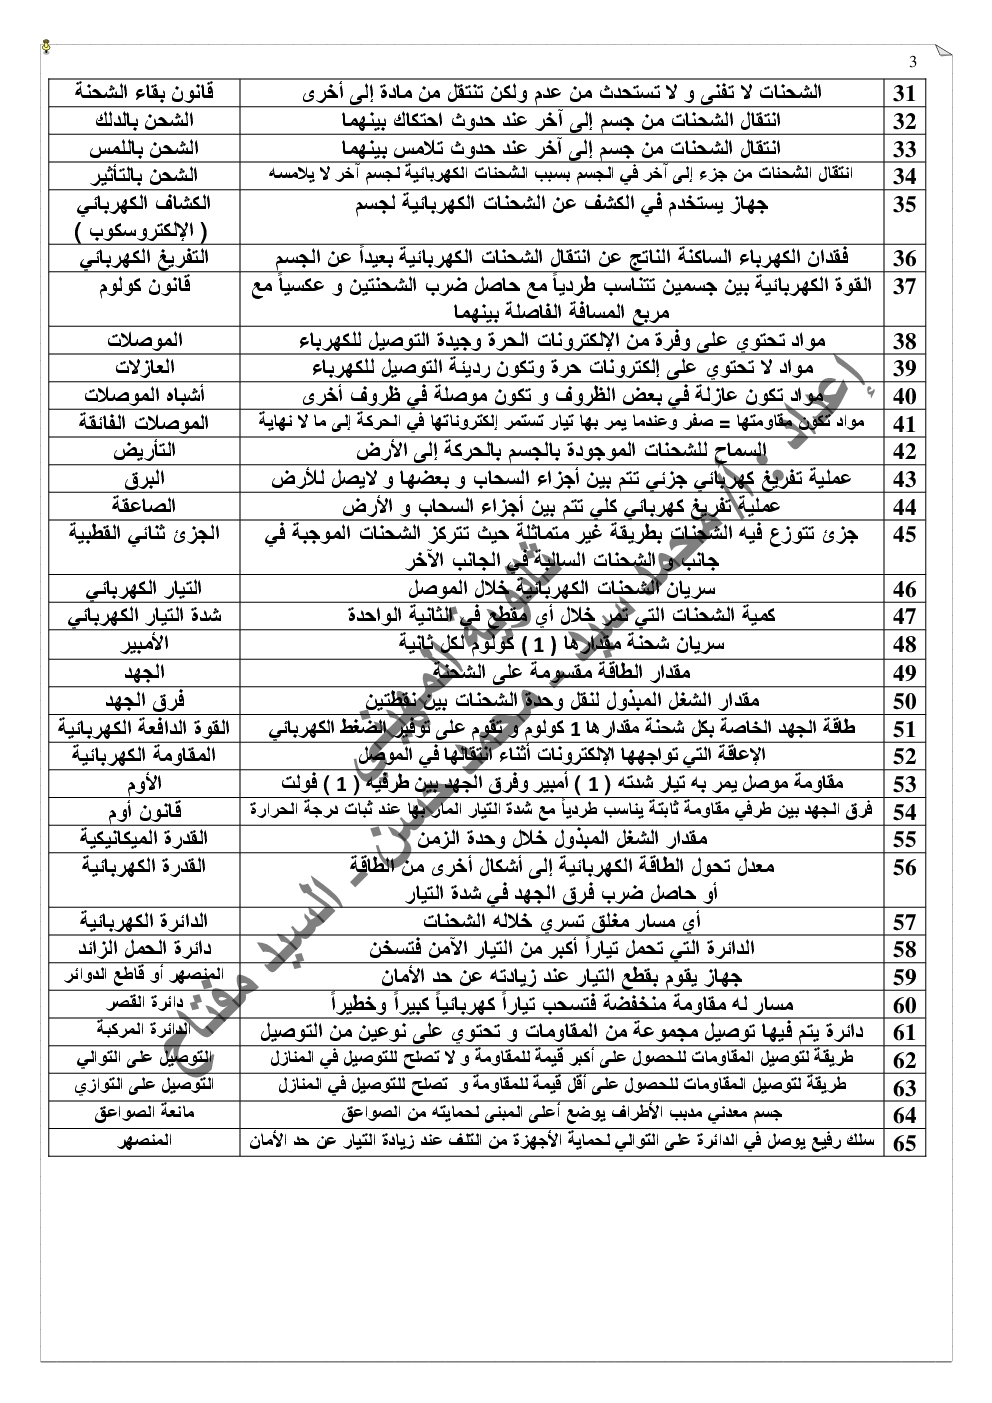 3
31 الشحنات لا تفنى و لا تستحدث من عدم ولكن تنتقل من مادة إلى أخرى قانون بقاء الشحنة
32 انتقال الشحنات من جسم إلى آخر عند حدوث احتكاك بينهما الشحن بالدلك
33 انتقال الشحنات من جسم إلى آخر عند حدوث تلامس بينهما الشحن باللمس
34 انتقال الشحنات من جزء إلى آخر في الجسم بسبب الشحنات الكهربائية لجسم آخر لا يلامسه الشحن بالتأثير
35 جهاز يستخدم في الكشف عن الشحنات الكهربائية لجسم الكشاف الكهربائي
( الإلكتروسكوب )
36 فقدان الكهرباء الساكنة الناتج عن انتقال الشحنات الكهربائية بعيداً عن الجسم التفريغ الكهربائي
37 القوة الكهربائية بين جسمين تتناسب طردياً مع حاصل ضرب الشحنتين و عكسياً مع قانون كولوم
مربع المسافة الفاصلة بينهما
38 مواد تحتوي على وفرة من الإلكترونات الحرة وجيدة التوصيل للكهرباء الموصلات
39 مواد لا تحتوي على إلكترونات حرة وتكون رديئة التوصيل للكهرباء العازلات
40 مواد تكون عازلة في بعض الظروف و تكون موصلة في ظروف أخرى أشباه الموصلات
41 مواد تكون مقاومتها = صفر وعندما يمر بها تيار تستمر إلكتروناتها في الحركة إلى ما لا نهاية الموصلات الفائقة
42 السماح للشحنات الموجودة بالجسم بالحركة إلى الأرض التأريض
43 عملية تفريغ كهربائي جزئي تتم بين أجزاء السحاب و بعضها و لايصل للأرض البرق
44 عملية تفريغ كهربائي كلي تتم بين أجزاء السحاب و الأرض الصاعقة
45 جزئ تتوزع فيه الشحنات بطريقة غير متماثلة حيث تتركز الشحنات الموجبة في الجزئ ثنائي القطبية
جانب و الشحنات السالبة في الجانب الآخر
46 سريان الشحنات الكهربائية خلال الموصل التيار الكهربائي
47 كمية الشحنات التي تمر خلال أي مقطع في الثانية الواحدة شدة التيار الكهربائي
48 سريان شحنة مقدارها ( 1 ) كولوم لكل ثانية الأمبير
49 مقدار الطاقة مقسومة على الشحنة الجهد
50 مقدار الشغل المبذول لنقل وحدة الشحنات بين نقطتين فرق الجهد
51 طاقة الجهد الخاصة بكل شحنة مقدارها 1 كولوم و تقوم على توفير الضغط الكهربائي القوة الدافعة الكهربائية
52 الإعاقة التي تواجهها الإلكترونات أثناء انتقالها في الموصل المقاومة الكهربائية
53 مقاومة موصل يمر به تيار شدته ( 1 ) أمبير وفرق الجهد بين طرفيه ( 1 ) فولت الأوم
54 فرق الجهد بين طرفي مقاومة ثابتة يناسب طردياً مع شدة التيار المار بها عند ثبات درجة الحرارة قانون أوم
55 مقدار الشغل المبذول خلال وحدة الزمن القدرة الميكانيكية
56 معدل تحول الطاقة الكهربائية إلى أشكال أخرى من الطاقة القدرة الكهربائية
أو حاصل ضرب فرق الجهد في شدة التيار
57 أي مسار مغلق تسري خلاله الشحنات الدائرة الكهربائية
58 الدائرة التي تحمل تياراً أكبر من التيار الآمن فتسخن دائرة الحمل الزائد
59 جهاز يقوم بقطع التيار عند زيادته عن حد الأمان المنصهر أو قاطع الدوائر
60 مسار له مقاومة منخفضة فتسحب تياراً كهربائياً كبيراً وخطيراً دائرة القصر
61 دائرة يتم فيها توصيل مجموعة من المقاومات و تحتوي على نوعين من التوصيل الدائرة المركبة
62 طريقة لتوصيل المقاومات للحصول على أكبر قيمة للمقاومة و لا تصلح للتوصيل في المنازل التوصيل على التوالي
63 طريقة لتوصيل المقاومات للحصول على أقل قيمة للمقاومة و تصلح للتوصيل في المنازل التوصيل على التوازي
64 جسم معدني مدبب الأطراف يوضع أعلى المبنى لحمايته من الصواعق مانعة الصواعق
65 سلك رفيع يوصل في الدائرة على التوالي لحماية الأجهزة من التلف عند زيادة التيار عن حد الأمان المنصهر
إعداد : أ/ محمد سيد - محمد حسن - السيد مفتاح
ثانوية المرينى